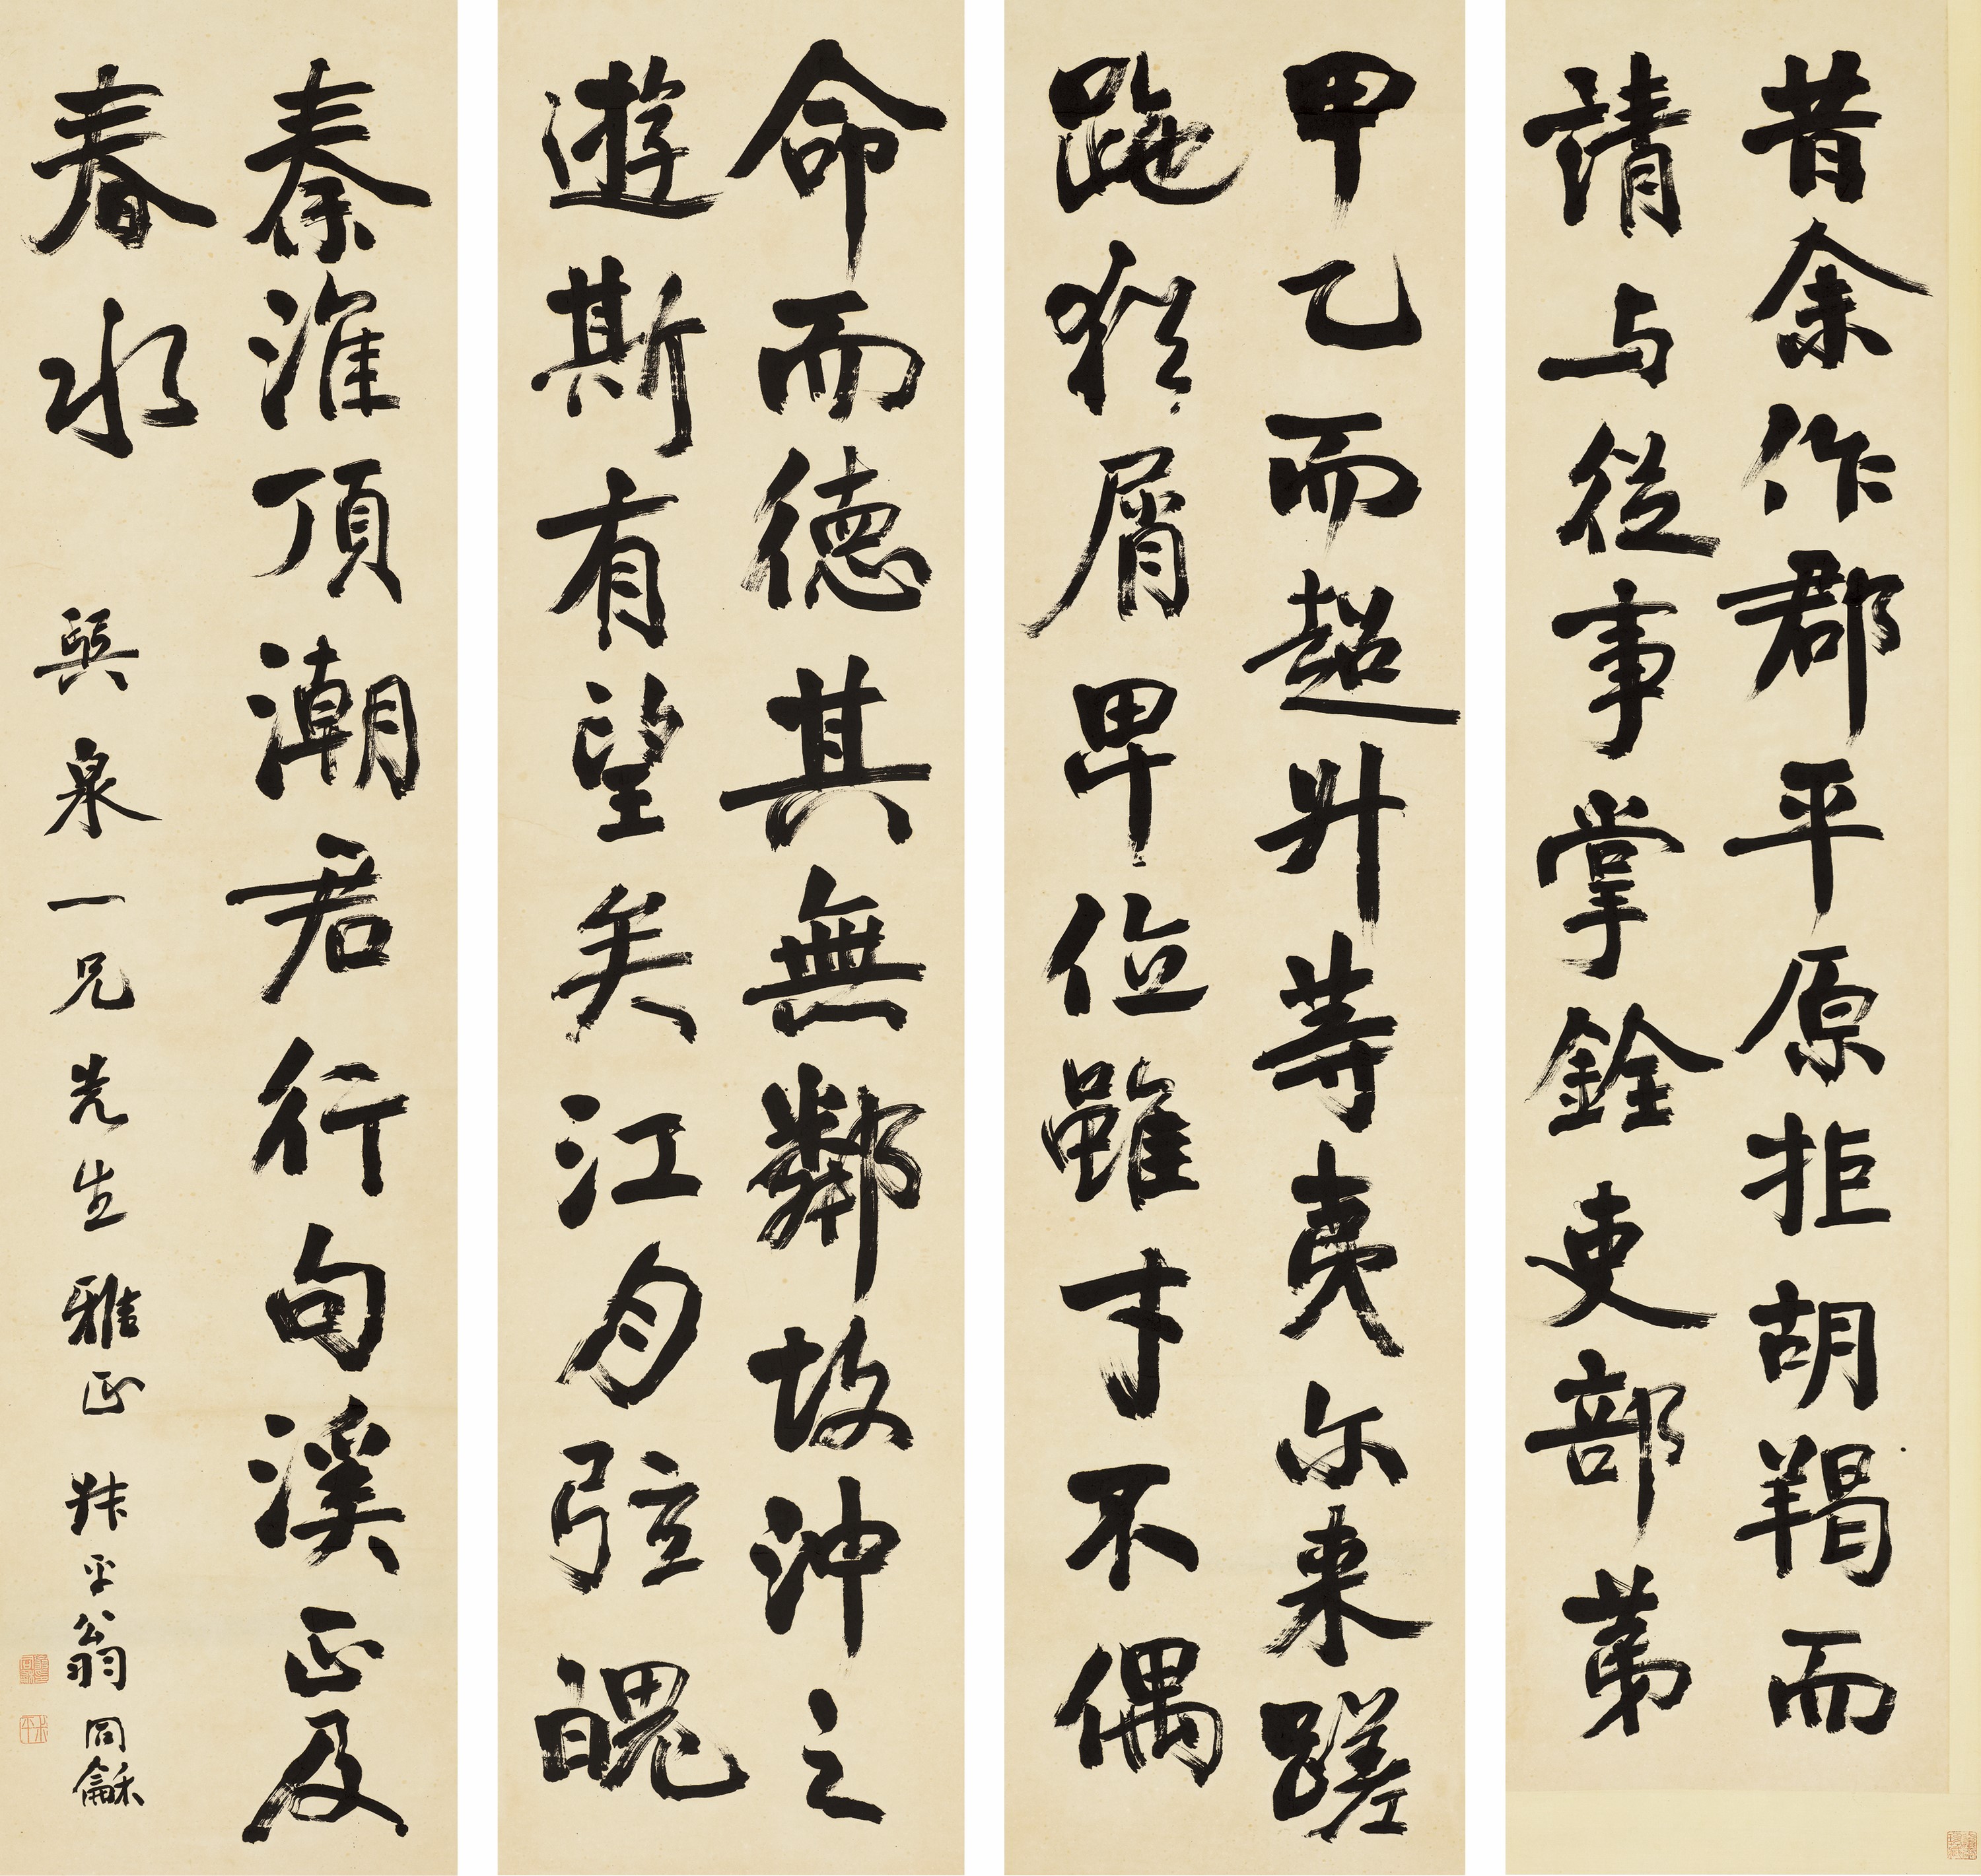 昔余作郡平原拒胡羯而
請与從事掌銓吏部第
甲乙而超升等夷尔来蹉
跎猶屑卑位雖才不偶
命而德其無鄰故沖之
遊斯有望矣江月弦魄
秦淮頂潮君行句溪正及
春水
巽泉一兄先生雅正 叔平翁同龢